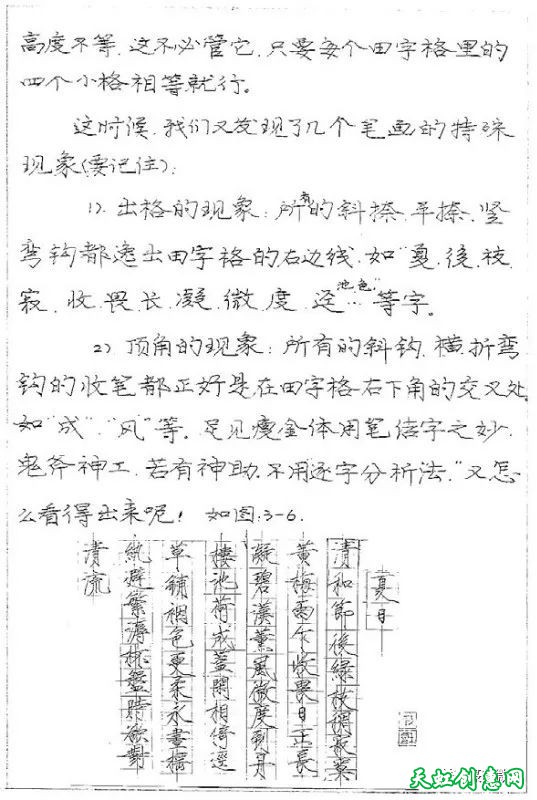 高度不等.这不必管它.只要每个田字格里的
四个小格相等就行。
这时候.我们又发现了几个笔画的特殊
现象(要记住):
1). 出格的现象:所有的斜捺.平捺.竖
弯钩都逸出田字格的右边线.如"夏.後.被.
寂.收.畏.长.凝.微.度.迳池.色…"等字。
2) 顶角的现象:所有的斜钩.横折弯
钩的收笔都正好是在田字格右下角的交叉处.
如"成"."风"等。足见瘦金体用笔结字之妙.
鬼斧神工.若有神助.不用逐字分析法."又怎
么看得出来呢! 如图:3-6.
夏日
清和節後綠枝稠寂寞
黃梅雨乍收畏日正長
凝碧漢薰風微度到丹
樓池荷成蓋閒相倚逕
草鋪裀色更柔永晝搖
紈避繁溽杯盤時欲對
清流
天虹创意网